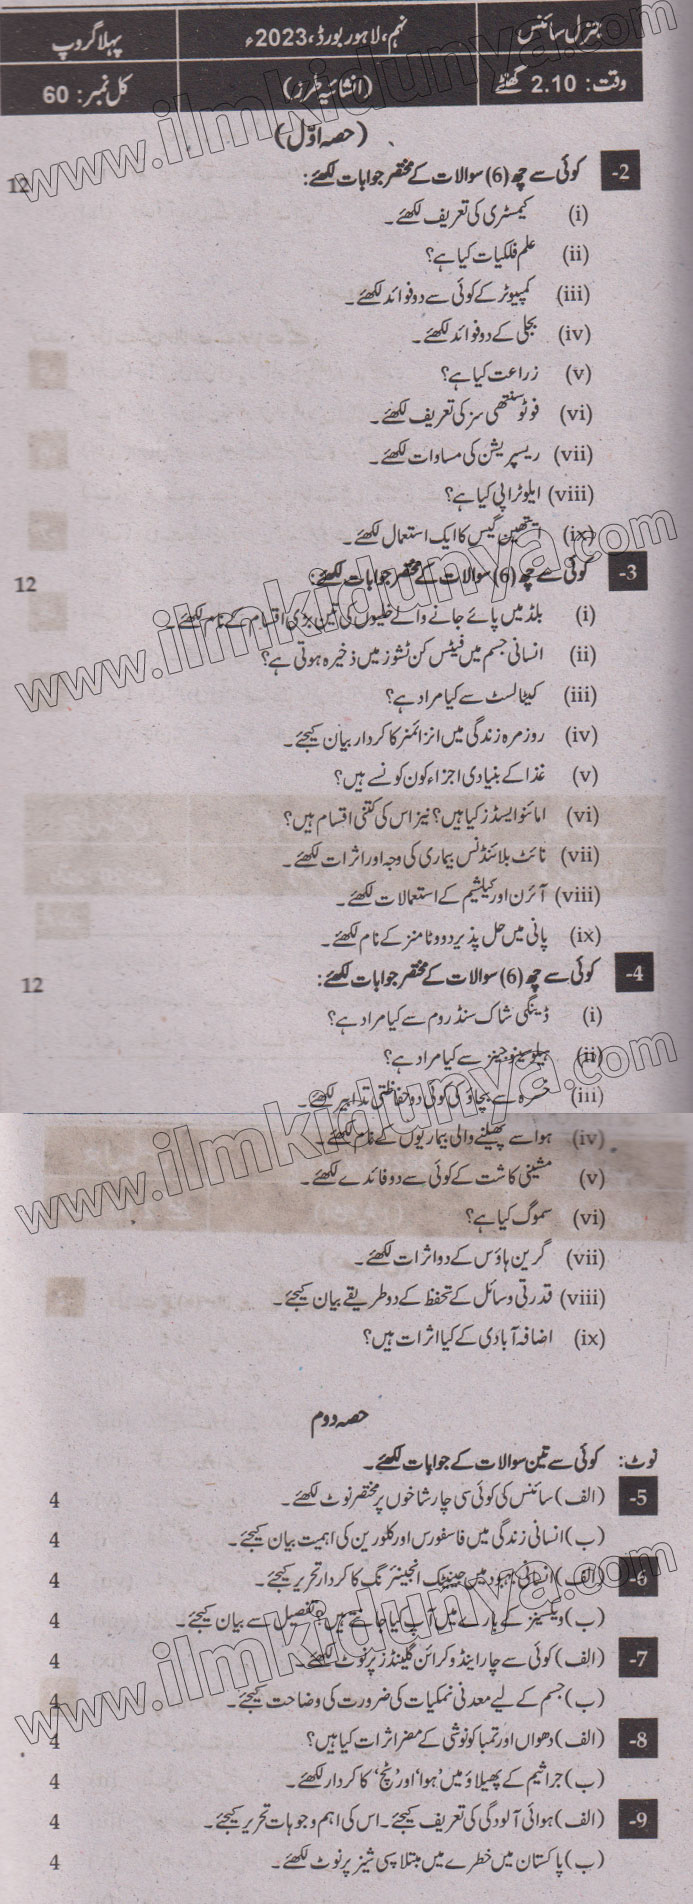 جنرل سائنس نہم، لاہور بورڈ، 2023ء پہلا گروپ
وقت: 2.10 گھنٹے (انشائیہ طرز) کل نمبر: 60
(حصہ اوّل)
2- کوئی سے چھ (6) سوالات کے مختصر جوابات لکھئے: 12
(i) کیمسٹری کی تعریف لکھئے۔
(ii) علم فلکیات کیا ہے؟
(iii) کمپیوٹر کے کوئی سے دو فوائد لکھئے۔
(iv) بجلی کے دو فوائد لکھئے۔
(v) زراعت کیا ہے؟
(vi) فوٹو سنتھی سز کی تعریف لکھئے۔
(vii) ریسپریشن کی مساوات لکھئے۔
(viii) ایلوٹراپی کیا ہے؟
(ix) ایتھین گیس کا ایک استعمال لکھئے۔
3- کوئی سے چھ (6) سوالات کے مختصر جوابات لکھئے: 12
(i) بلڈ میں پائے جانے والے خلیوں کی تین بڑی اقسام کے نام لکھئے۔
(ii) انسانی جسم میں فیٹس کن ٹشوز میں ذخیرہ ہوتی ہے؟
(iii) کیٹالسٹ سے کیا مراد ہے؟
(iv) روزمرہ زندگی میں انزائمز کا کردار بیان کیجئے۔
(v) غذا کے بنیادی اجزاء کون کونسے ہیں؟
(vi) امائنو ایسڈز کیا ہیں؟ نیز اس کی کتنی اقسام ہیں؟
(vii) نائٹ بلائنڈنس بیماری کی وجہ اور اثرات لکھئے۔
(viii) آئرن اور کیلشیم کے استعمالات لکھئے۔
(ix) پانی میں حل پذیر دو وٹامنز کے نام لکھئے۔
4- کوئی سے چھ (6) سوالات کے مختصر جوابات لکھئے: 12
(i) ڈینگی شاک سنڈروم سے کیا مراد ہے؟
(ii) ہیلوسینوجینز سے کیا مراد ہے؟
(iii) خسرہ سے بچاؤ کی کوئی دو حفاظتی تدابیر لکھئے۔
(iv) ہوا سے پھیلنے والی بیماریوں کے نام لکھئے۔
(v) مشینی کاشت کے کوئی سے دو فائدے لکھئے۔
(vi) سموگ کیا ہے؟
(vii) گرین ہاؤس کے دو اثرات لکھئے۔
(viii) قدرتی وسائل کے تحفظ کے دو طریقے بیان کیجئے۔
(ix) اضافہ آبادی کے کیا اثرات ہیں؟
حصہ دوم
نوٹ: کوئی سے تین سوالات کے جوابات لکھئے۔
5- (الف) سائنس کی کوئی سی چار شاخوں پر مختصر نوٹ لکھئے۔ 4
(ب) انسانی زندگی میں فاسفورس اور کلورین کی اہمیت بیان کیجئے۔ 4
6- (الف) انسانی بہبود میں جینیٹک انجینئرنگ کا کردار تحریر کیجئے۔ 4
(ب) ویکسینز کے بارے میں آپ کیا جانتے ہیں؟ تفصیل سے بیان کیجئے۔ 4
7- (الف) کوئی سے چار اینڈوکرائن گلینڈز پر نوٹ لکھئے۔ 4
(ب) جسم کے لیے معدنی نمکیات کی ضرورت کی وضاحت کیجئے۔ 4
8- (الف) دھواں اور تمباکو نوشی کے مضر اثرات کیا ہیں؟ 4
(ب) جراثیم کے پھیلاؤ میں 'ہوا' اور 'ٹچ' کا کردار لکھئے۔ 4
9- (الف) ہوائی آلودگی کی تعریف کیجئے۔ اس کی اہم وجوہات تحریر کیجئے۔ 4
(ب) پاکستان میں خطرے میں مبتلا سپی شیز پر نوٹ لکھئے۔ 4
www.ilmkidunya.com
www.ilmkidunya.com
www.ilmkidunya.com
www.ilmkidunya.com